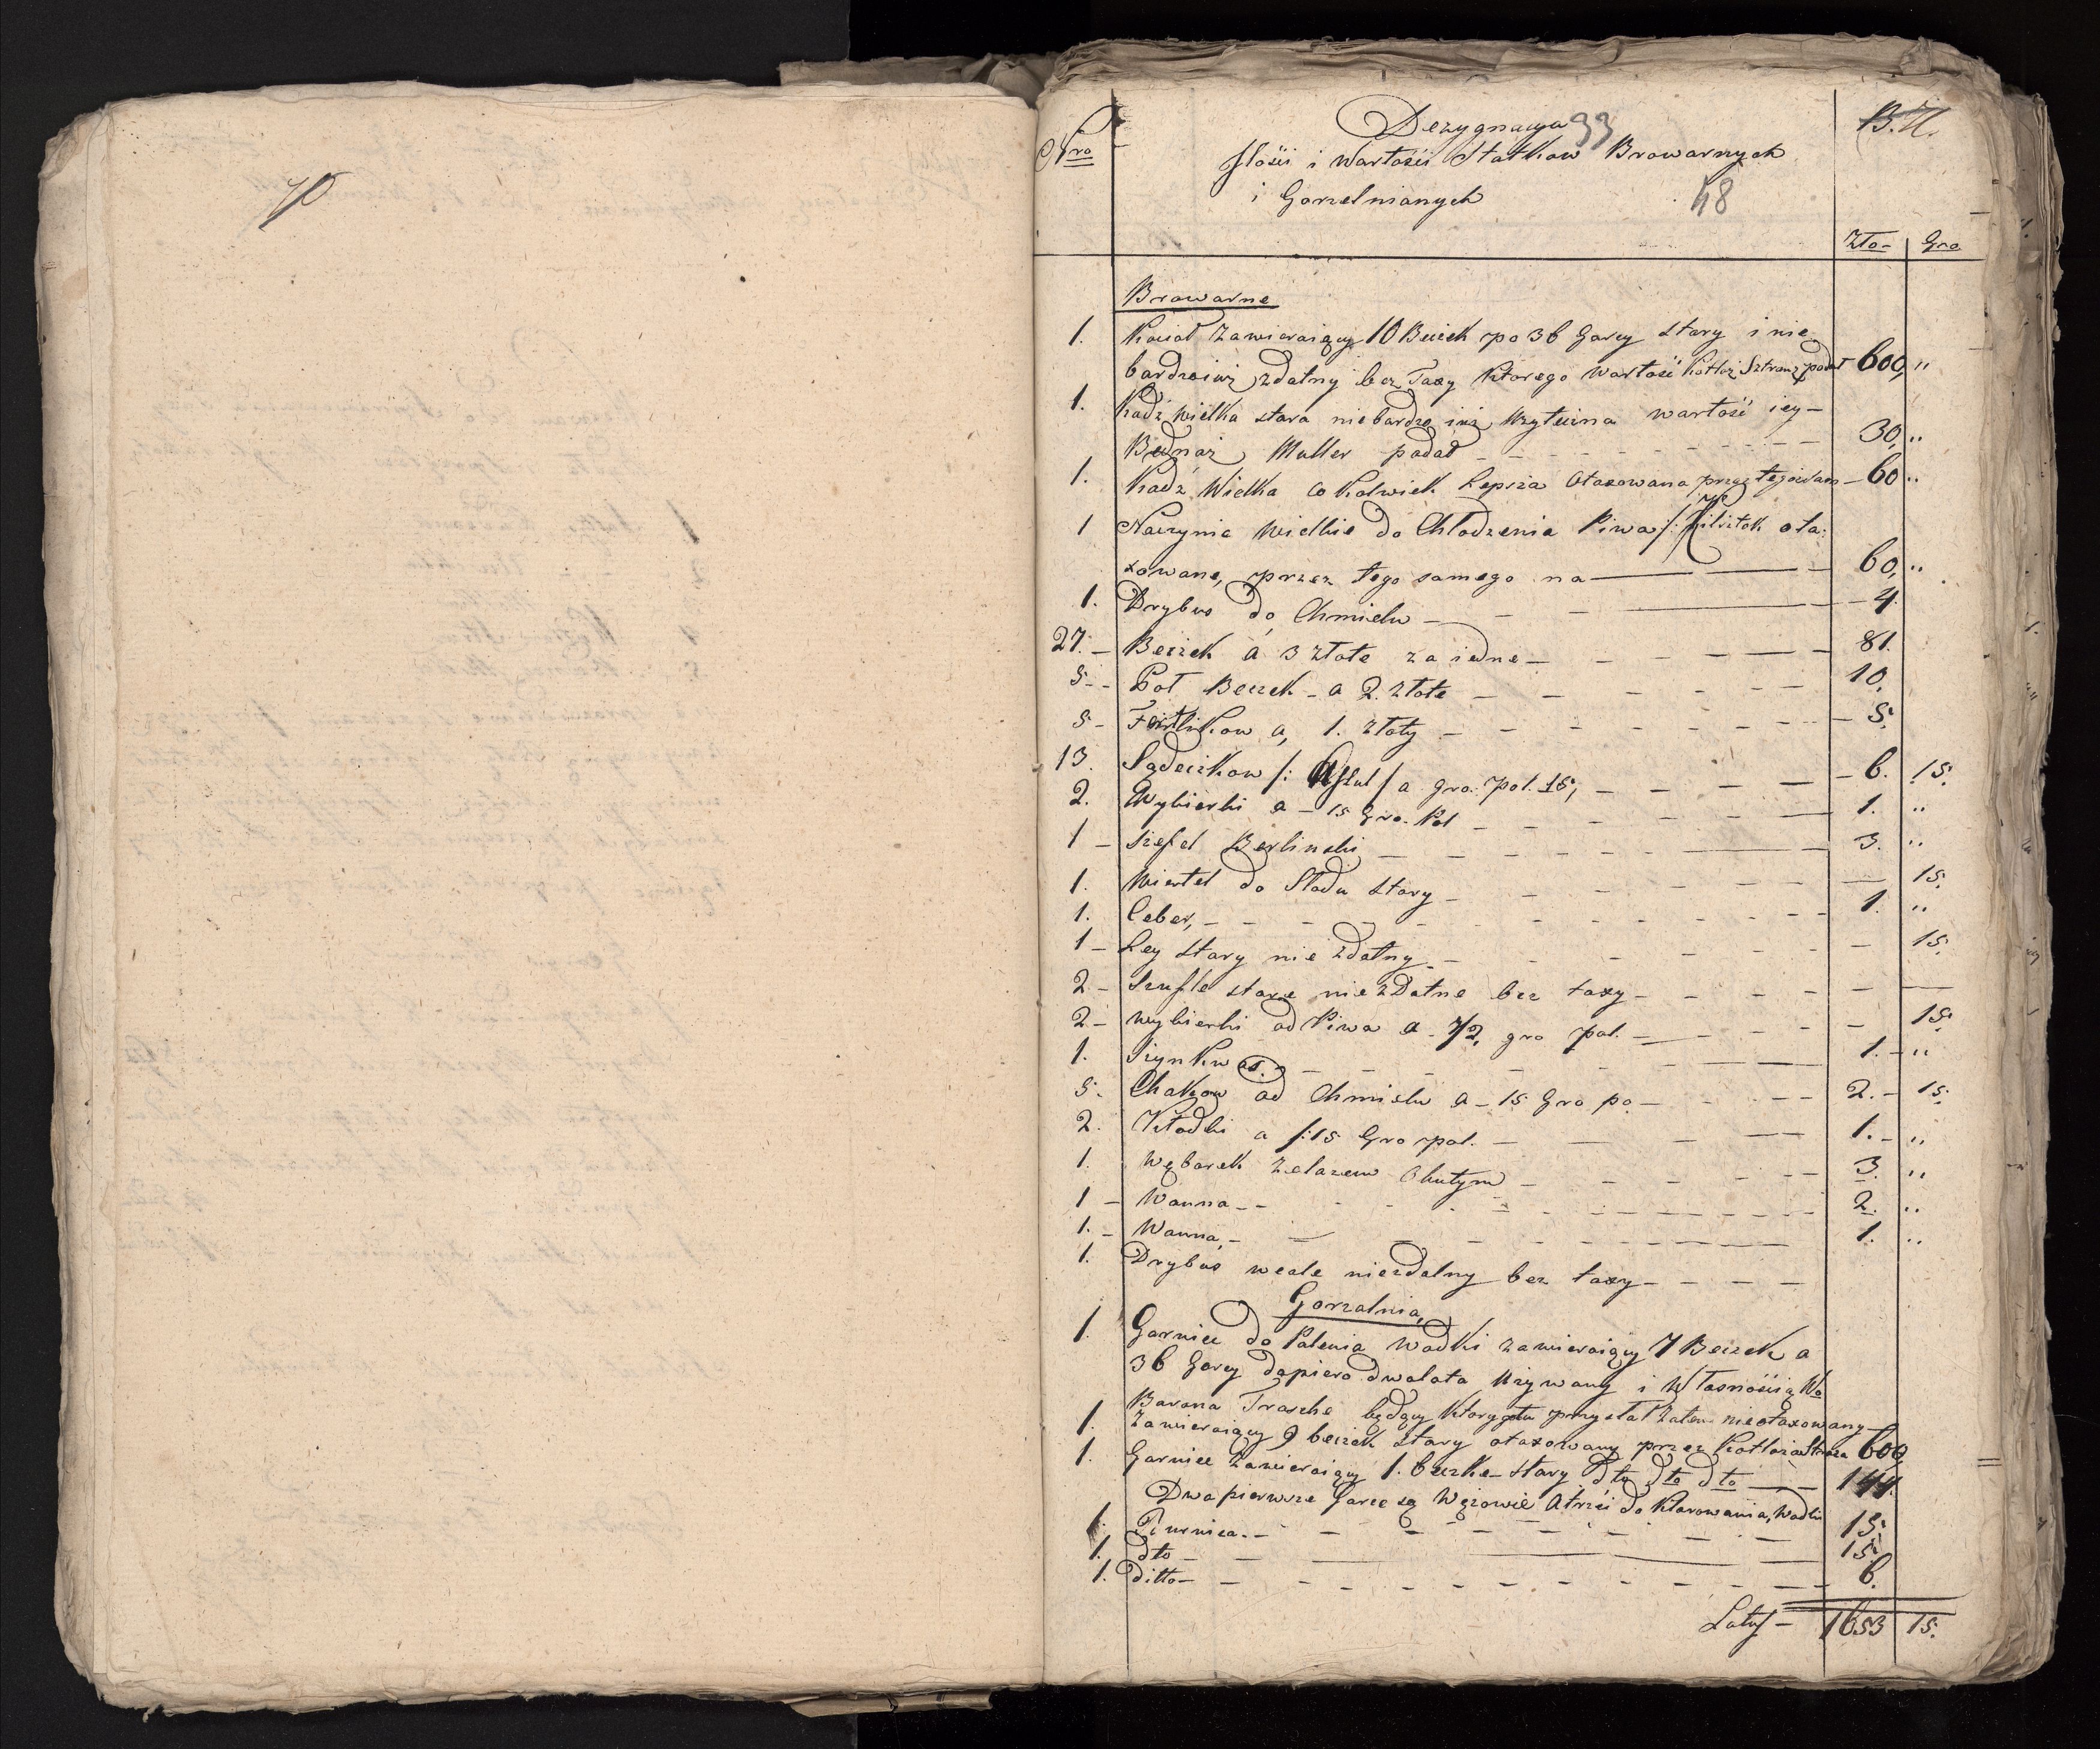 70
Nro
Dezygnacya 33
B. U.
Ilości i Wartości Statkow Browarnych
i Gorzelnianych
48
Zło- Gro
Browarne
1. Kocioł zawieraiący 10 Beczek po 36 Garcy stary i nie
bardzo iuż zdatny bez Taxy ktorego Wartość Kotlarz podał 600 "
1. Kadź wielka stara niebardzo iuż Użyteczna wartość iey -
Bednarz Muller podał - - - 30 "
1. Kadź Wielka cokolwiek Lepsza Otaxowana przez tegoż - 60 "
1 Naczynie Wielkie do Chłodzenia Piwa /: ota:
xowane, przez tego samego na — 60 "
1. Drybus do Chmielu - - - 4.
27. - Beczek á 3 złote za iedne - - - 81.
5 - - Pół Beczek - a 2. złote - - - 10.
5 - Fertlikow a, 1. złoty - - - 5.
13. Sądeczkow /: / a gro: pol. 15, - - - 6. 15.
2. Wybierki a - 15 Gro. Pol - - - 1. "
1 - Szefel Berlinski - - - 3. "
1. Wiertel do Słodu stary - - - 15.
1. Ceber, - - - 1. "
1 - Ley stary nie zdatny - - - 15.
2 - Szufle stare niezdatne bez taxy - - -
2 - wybierki od Piwa a - 7/2, gro pol. - - - 15.
1. Szynkwas. - - - 1. - "
5. Chakow od Chmielu a - 15 Gro po - - - 2. - 15.
2. Kłodki a /: 15 Gro pol. - - - 1. - "
1. Węborek żelazem Okutym - - - 3. "
1 - Wanna - - - 2. "
1. - Wanna, - - - 1. "
1. Drybus wcale niezdatny bez taxy - - - -
Gorzalnia,
1. Garniec do Palenia Wodki zawieraiący 7 Beczek a
36 Garcy dopiero dwa lata Używany i Własnością Wo
Barona Trosche będący zatem nieotaxowany -
1. Zawieraiący 9 beczek stary otaxowany przez Kotlarza 600
1. Garniec Zawieraiący 1. beczke - stary dto dto dto — 144.
Dwa pierwsze Garce są Wężowie do Klarowania, Wodki
1. Rurnica. - - - 15.
1. dto - - - 15.
1. ditto - - - 6.
Latus - 1653 15.